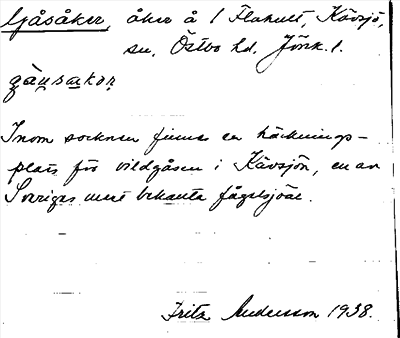 Gåsåker, åker å 1 Flahult, Kävsjö,
sn, Östbo hd. Jönk. l.
gå̀u̯sakər
Inom socknen finnes en häcknings-
plats för vildgåsen i Kävsjön, en av
Sveriges mest bekanta fågelsjöar.
Fritz Andersson 1938.